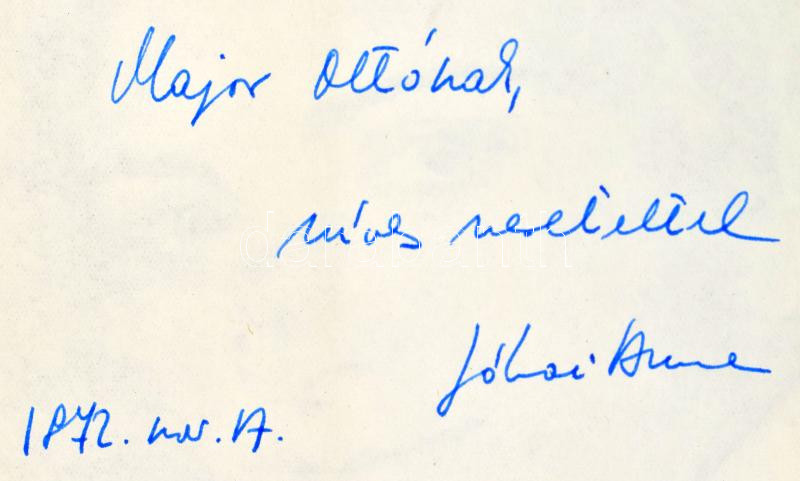 Major Ottónak,
szíves szeretettel
Jókai Anna
1972. nov. 17.